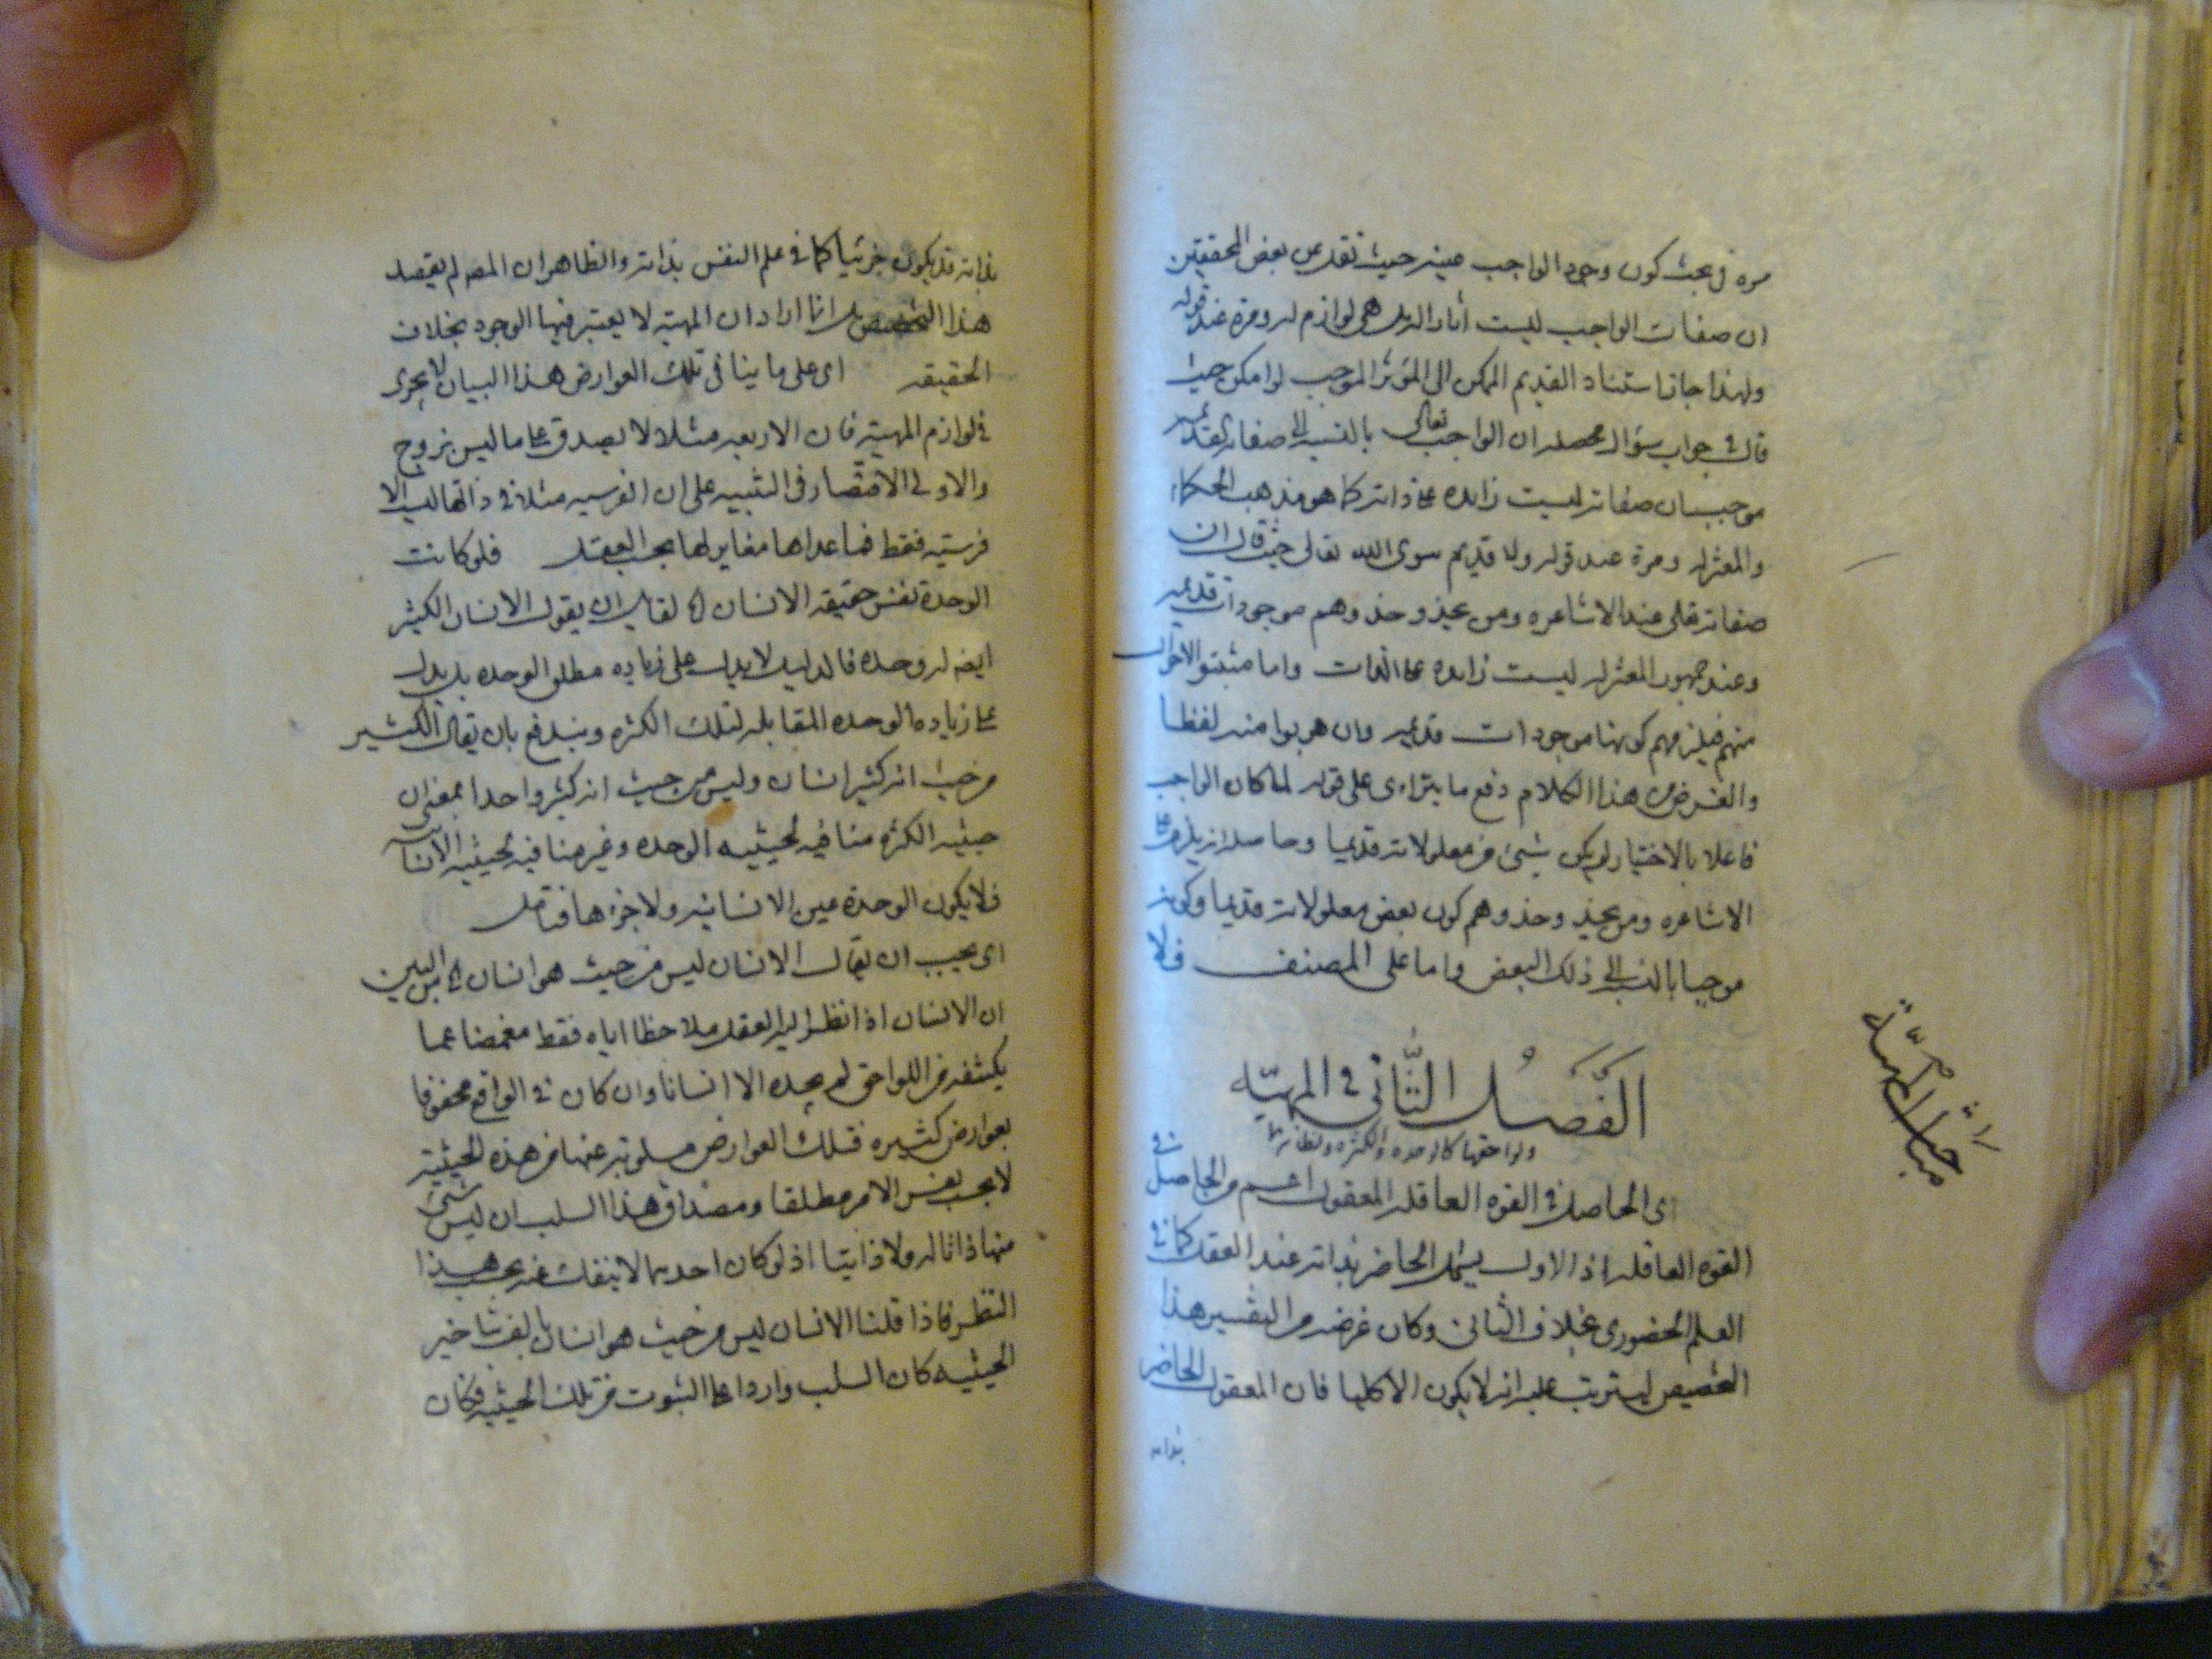 مرة في بحث كون وجود الواجب عينه حيث نقد عن بعض المحققين
ان صفات الواجب ليست أثارا له بل هى لوازم له ومرة عند قوله
ولهذا جاز استناد القديم الممكن الى المؤثر الموجب لو امكن حيث
قال فى جواب سؤال محصله ان الواجب تعالى بالنسبه الى صفاته القديمه
موجب بان صفاته ليست زايده على ذاته كما هو مذهب الحكماء
والمعتزله ومرة عند قوله ولا قديم سوى الله تعالى حيث قال ان
صفاته تعالى عند الاشاعره ومن يحذو حذوهم موجودات قديمه
وعند جمهور المعتزله ليست زايده على الذات واما مثبتو الاحوال
منهم فيلزمهم كونها موجودات قديمه وان هربوا منه لفظا
والغرض من هذا الكلام دفع ما يتراءى على قوله لما كان الواجب
فاعلا بالاختيار لم يكن شئ من معلولاته قديما وحاصله انه يلزم على
الاشاعره ومن يحذ وحذوهم كون بعض معلولاته قديما وكونه
موجبا بالنسبه الى ذلك البعض واما على المصنف فلا
الفصل الثانى فى المهيّه
ولواحقها كالوحده والكثره ونظائرهما
مباحث المهيّة
اى الحاصل فى القوه العاقله المعقول اعم من الحاصل فى
القوه العاقله اذ الاول يشمل الحاضر بذاته عند العقل كما فى
العلم الحضورى بخلاف الثانى وكان غرضه من التفسير هذا
التخصيص ليترتب عليه انه لا يكون الا كليا فان المعقول الحاضر
بذاته
بذاته قد يكون جزئيا كما فى علم النفس بذاته والظاهر ان المص لم يقصد
هذا التخصيص بل انما اراد ان المهيه لا يعتبر فيها الوجود بخلاف
الحقيقه اى على ما ينافى تلك العوارض هذا البيان لا يجرى
فى لوازم المهيه فان الاربعه مثلا لا يصدق على ما ليس بزوج
والاولى الاقتصار فى التنبيه على ان الفرسيه مثلا فى ذاتها ليست الا
فرسيه فقط فما عداها مغاير لها بحسب العقل فلو كانت
الوحدة نفس حقيقه الانسان اه لقايل ان يقول الانسان الكثير
ايضا له وحده فالدليل لا يدل على زياده مطلق الوحده بل يدل
على زياده الوحده المقابله لتلك الكثره ويندفع بان يقال الكثير
من حيث انه كثير انسان وليس من حيث انه كثير واحدا بمعنى ان
حيثيه الكثره منافيه لحيثيه الوحده وغير منافيه لحيثيه الانسانيه
فلا يكون الوحدة عين الانسانيه ولا جزءها فتامل
اى يجب ان يقال الانسان ليس من حيث هو انسان اه من البين
ان الانسان اذا نظر اليه العقل ملاحظا اياه فقط مغمضا عما
يكتنفه من اللواحق لم يجده الا انسانا وان كان فى الواقع محفوفا
بعوارض كثيره فتلك العوارض مسلوبه عنها من هذه الحيثيه
لا بحسب نفس الامر مطلقا ومصداق هذا السلب ان ليس شئ
منها ذاتا له ولا ذاتيا اذ لو كان احدهما لا ينفك عنه بحسب هذا
النظر فاذا قلنا الانسان ليس من حيث هو انسان بالف بتاخير
الحيثيه كان السلب واردا على الثبوت من تلك الحيثيه فكان